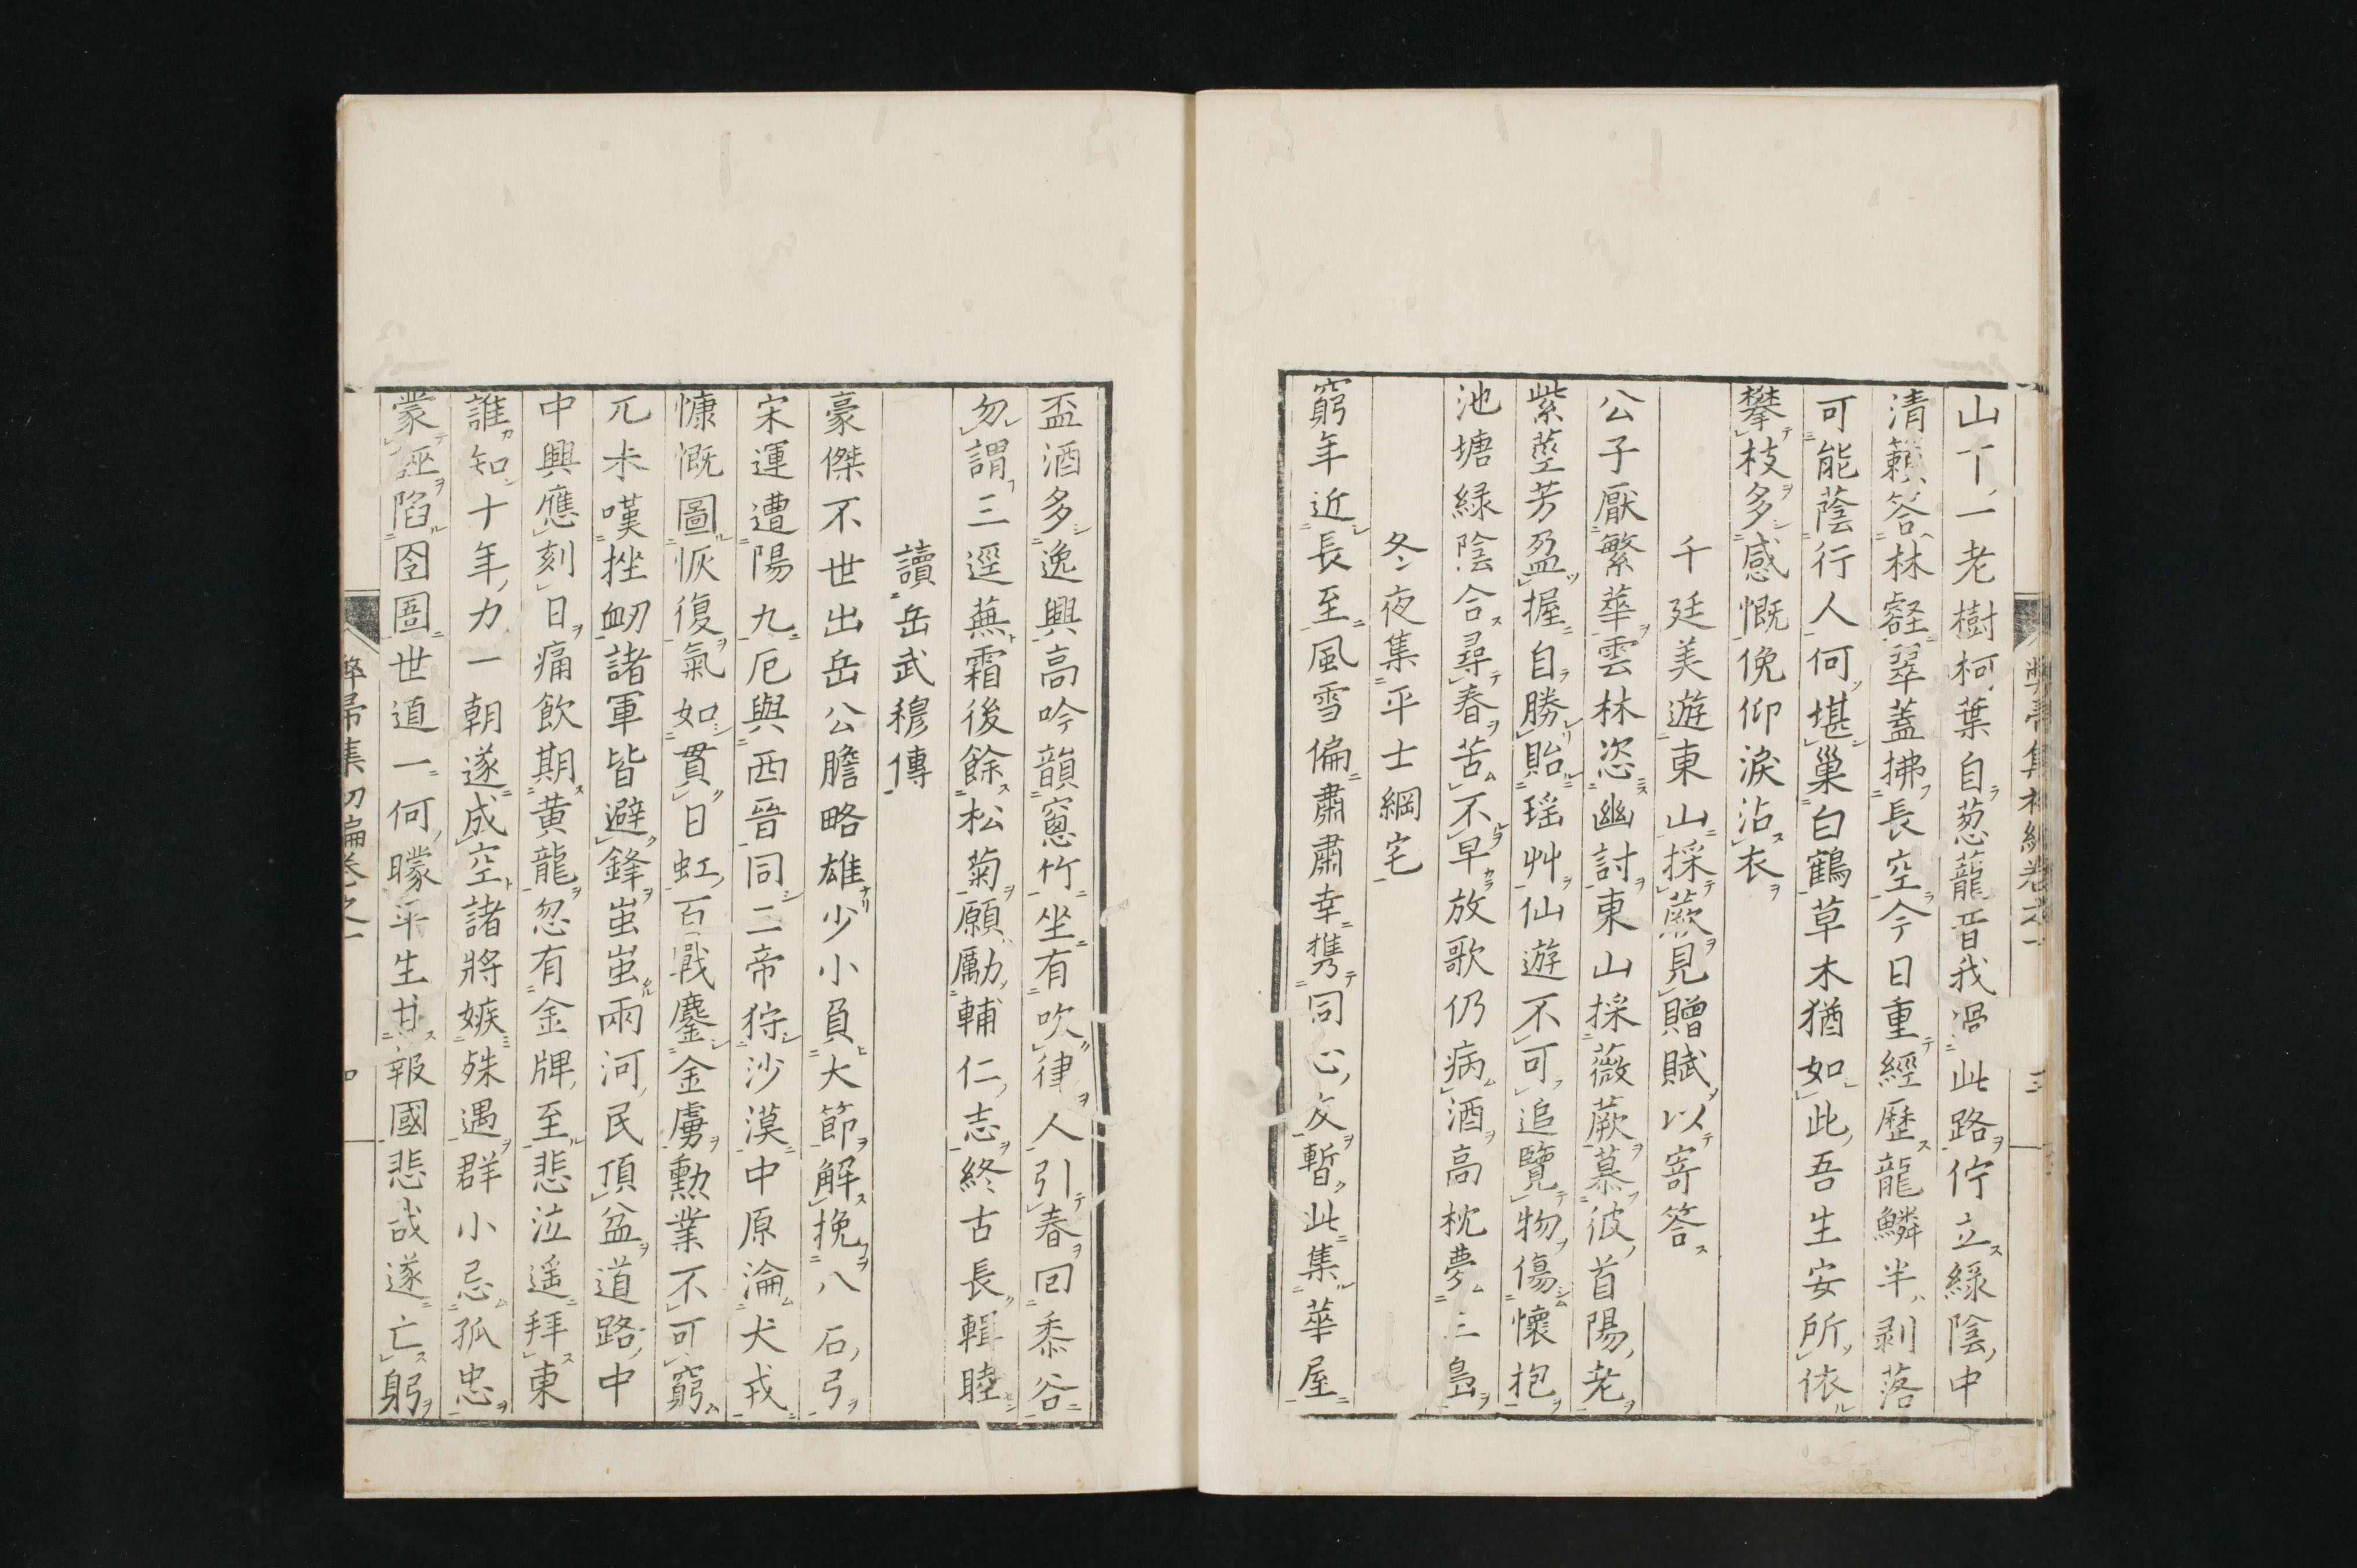 山下一老樹柯葉自葱蘢昔我過此路佇立綠陰中
清籟答林壑翠蓋拂長空今日重經歷龍鱗半剥落
可能蔭行人何堪巢白鶴草木猶如此吾生安所依
攀枝多感慨俛仰淚沾衣
千廷美遊東山採蕨見贈賦以寄答
公子厭繁華雲林恣幽討東山採薇蕨慕彼首陽老
紫莖芳盈握自勝貽瑶艸仙遊不可追覽物傷懷抱
池塘緑陰合尋春苦不早放歌仍病酒高枕夢三島
冬夜集平士綱宅
窮年近長至風雪偏肅肅幸携同心友暫此集華屋
盃酒多逸興高吟韻窻竹坐有吹律人引春回黍谷
勿謂三逕蕪霜後餘松菊願勵輔仁志終古長輯睦
讀岳武穆傳
豪傑不世出岳公膽略雄少小負大節解挽八石弓
宋運遭陽九厄與西晉同二帝狩沙漠中原淪犬戎
慷慨圖恢復氣如貫日虹百戰鏖金虜勲業不可窮
兀朮嘆挫衂諸軍皆避鋒蚩蚩兩河民頂盆道路中
中興應刻日痛飲期黄龍忽有金牌至悲泣遥拜東
誰知十年力一朝遂成空諸將嫉殊遇群小忌孤忠
蒙誣陷囹圄世道一何矇平生甘報國悲哉遂亡躬
弊帚集初編卷之一 四